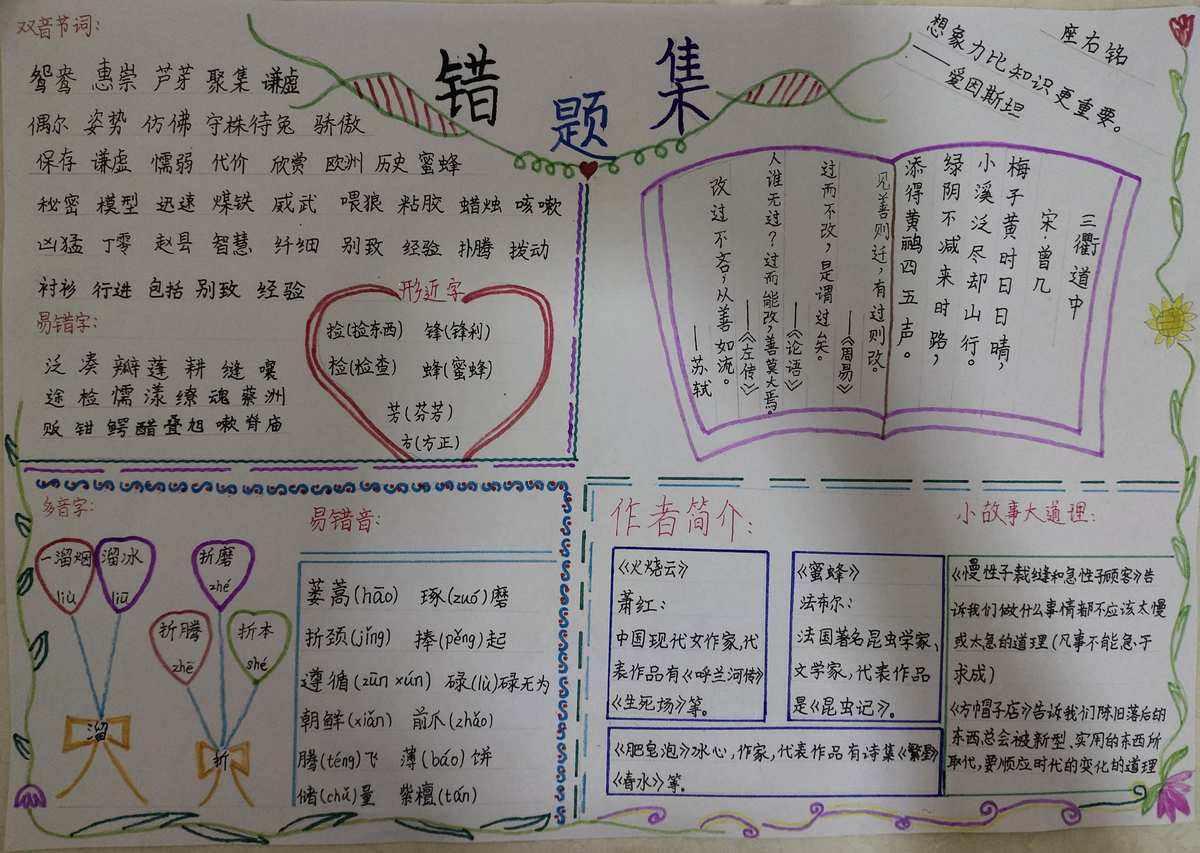 双音节词:
鸳鸯 惠崇 芦芽 聚集 谦虚
偶尔 姿势 仿佛 守株待兔 骄傲
保存 谦虚 懦弱 代价 欣赏 欧洲 历史 蜜蜂
秘密 模型 迅速 煤铁 威武 喂狼 粘胶 蜡烛 咳嗽
凶猛 丁零 赵县 智慧 纤细 别致 经验 扑腾 拨动
衬衫 行进 包括 别致 经验
易错字:
泛 凑 瓣 蓬 耕 缝 嚷
途 检 懦 漾 缭 魂 蔡 洲
贩 钳 鳄 醋 叠 旭 嗽 脊 庙
形近字
捡(捡东西) 锋(锋利)
检(检查) 蜂(蜜蜂)
芳(芬芳)
方(方正)
错题集
座右铭
想象力比知识更重要。
——爱因斯坦
三衢道中
宋·曾几
梅子黄时日日晴,
小溪泛尽却山行。
绿阴不减来时路,
添得黄鹂四五声。
见善则迁,有过则改。
——《周易》
过而不改,是谓过矣。
——《论语》
人谁无过?过而能改,善莫大焉。
——《左传》
改过不吝,从善如流。
——苏轼
多音字:
一溜烟
liù
溜冰
liū
溜
折磨
zhé
折腾
zhē
折本
shé
折
易错音:
蒌蒿(hāo) 琢(zuó)磨
折颈(jǐng) 捧(pěng)起
遵循(zūn xún) 碌(lù)碌无为
朝鲜(xiǎn) 前爪(zhǎo)
腾(téng)飞 薄(báo)饼
储(chǔ)量 紫檀(tán)
作者简介:
《火烧云》
萧红:
中国现代女作家,代
表作品有《呼兰河传》
《生死场》等。
《蜜蜂》
法布尔:
法国著名昆虫学家、
文学家,代表作品
是《昆虫记》。
《肥皂泡》冰心,作家,代表作品有诗集《繁星》
《春水》等。
小故事大道理:
《慢性子裁缝和急性子顾客》告
诉我们做什么事情都不应该太慢
或太急的道理(凡事不能急于
求成)
《方帽子店》告诉我们陈旧落后的
东西总会被新型、实用的东西所
取代,要顺应时代的变化的道理